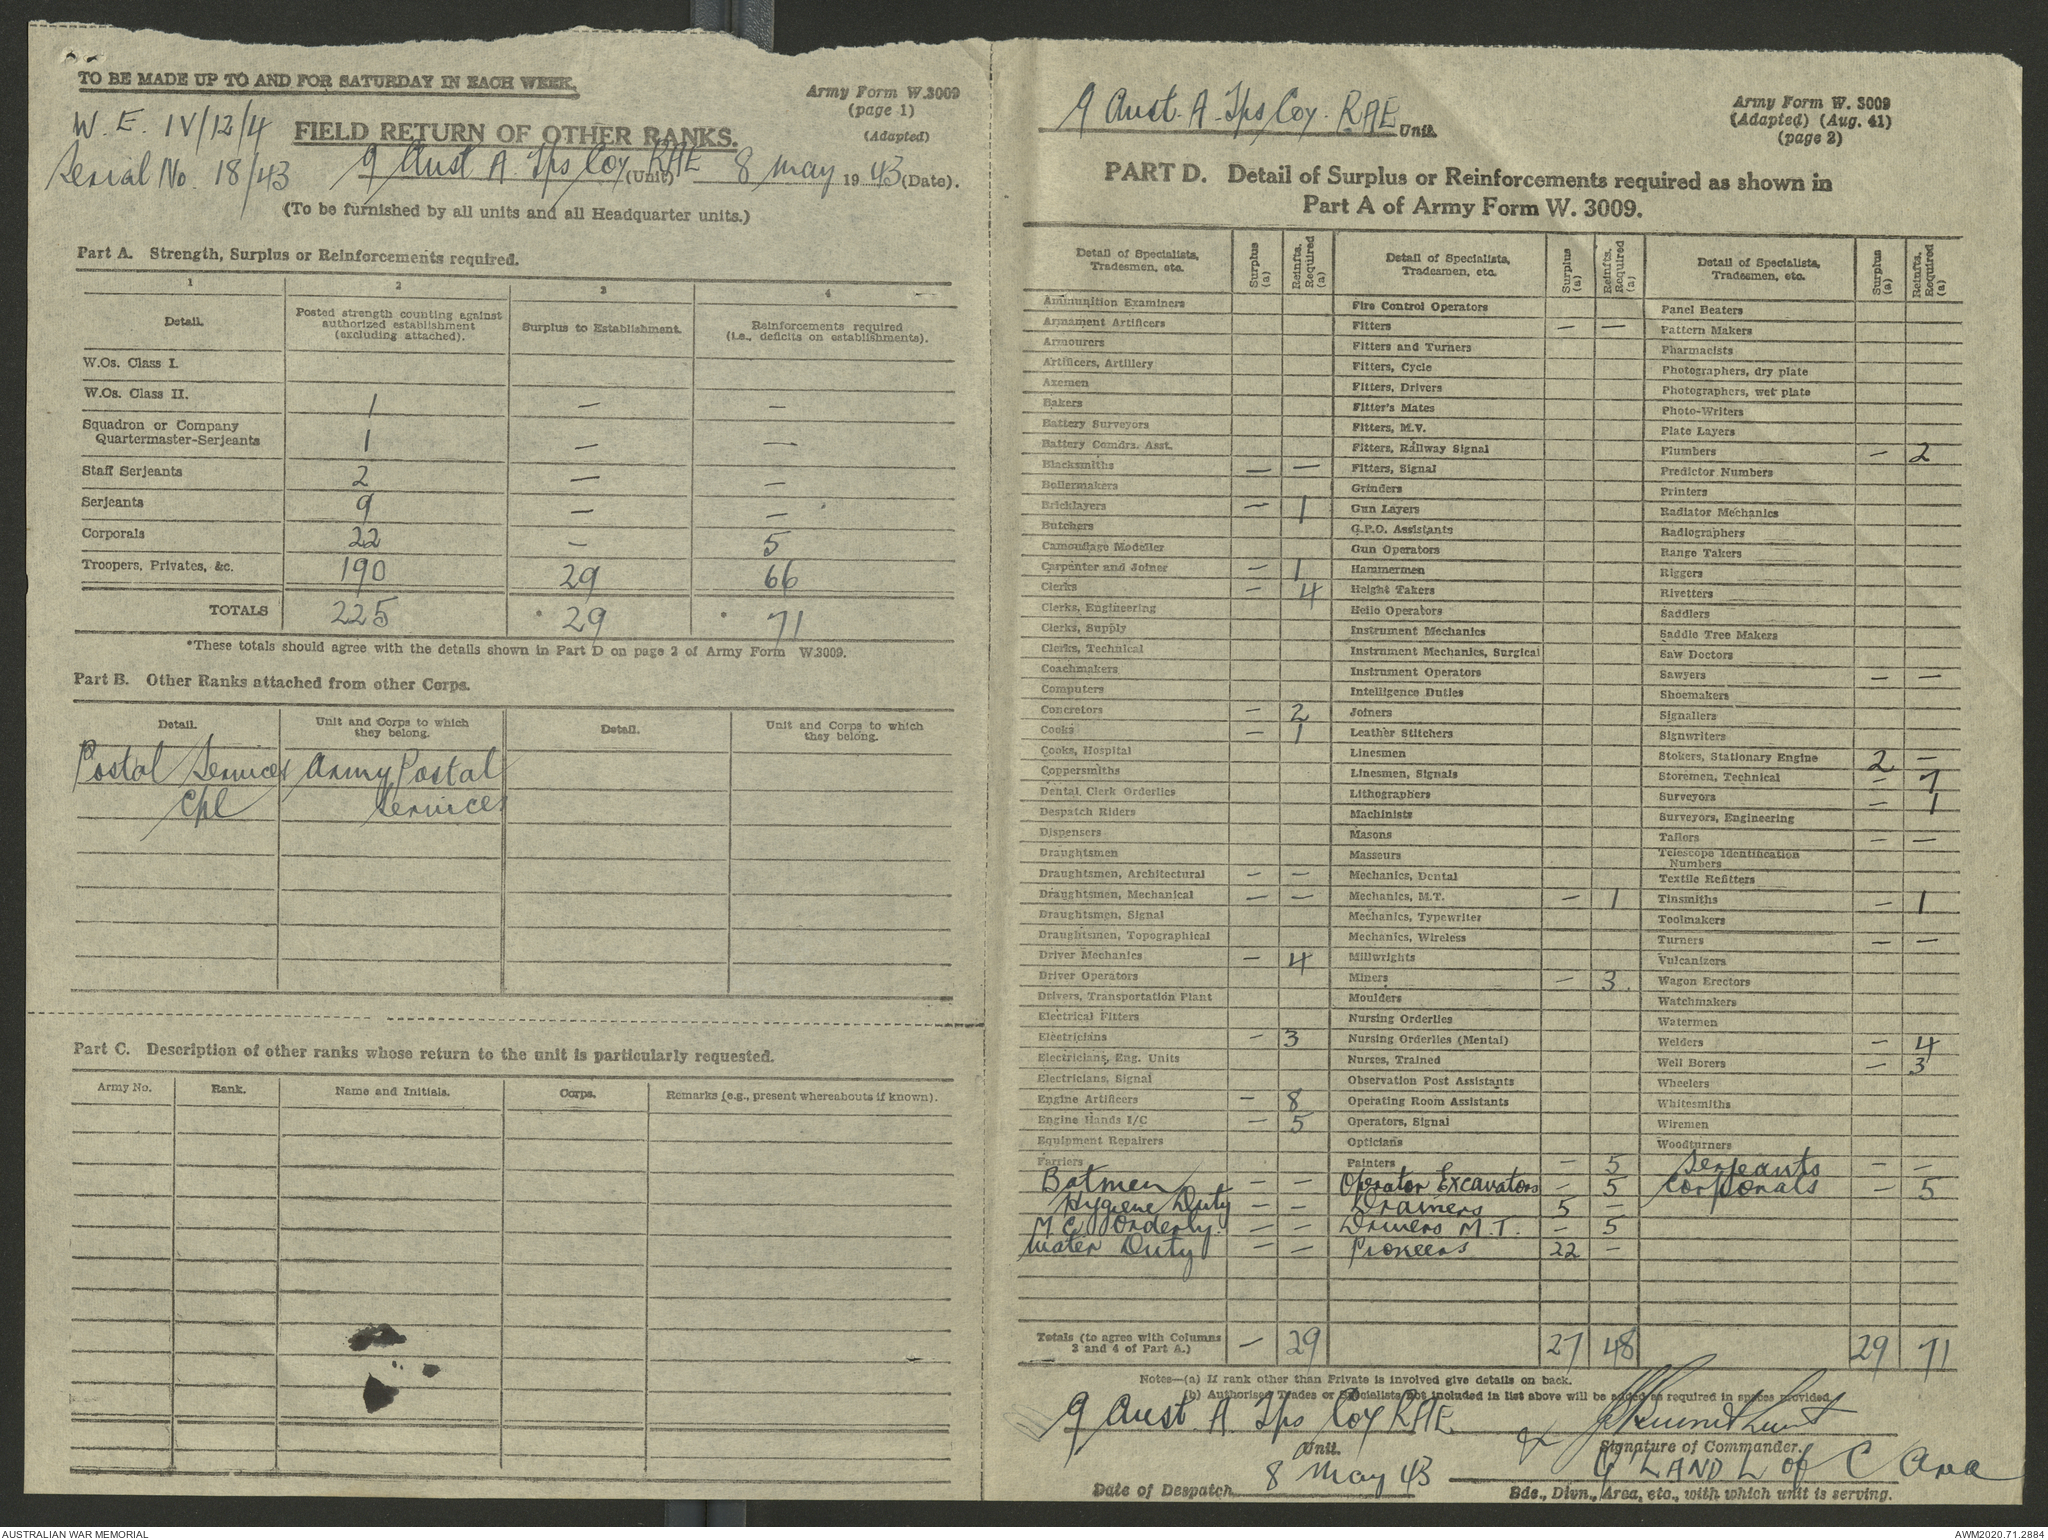 TO BE MADE UP TO AND FOR SATURDAY IN EACH WEEK.
Army Form W.3009
(page 1)
(Adapted)
W. E. IV/12/4
FIELD RETURN OF OTHER RANKS.
Serial No. 18/43
9 Aust A. Tps Coy RAE (Unit) 8 May 1943 (Date).
(To be furnished by all units and all Headquarter units.)
Part A. Strength, Surplus or Reinforcements required.
1 2 3 4
Detail. Posted strength counting against authorized establishment (excluding attached). Surplus to Establishment. Reinforcements required (i.e., deficits on establishments).
W.Os. Class I.
W.Os. Class II. 1 — —
Squadron or Company Quartermaster-Serjeants 1 — —
Staff Serjeants 2 — —
Serjeants 9 — —
Corporals 22 — 5
Troopers, Privates, &c. 190 29 66
TOTALS 225 * 29 * 71
*These totals should agree with the details shown in Part D on page 2 of Army Form W.3009.
Part B. Other Ranks attached from other Corps.
Detail. Unit and Corps to which they belong. Detail. Unit and Corps to which they belong.
Postal Services Army Postal
Cpl Services
Part C. Description of other ranks whose return to the unit is particularly requested.
Army No. Rank. Name and Initials. Corps. Remarks (e.g., present whereabouts if known).
9 Aust. A. Tps Coy. RAE Unit
Army Form W. 3009
(Adapted) (Aug. 41)
(page 2)
PART D. Detail of Surplus or Reinforcements required as shown in
Part A of Army Form W. 3009.
Detail of Specialists, Tradesmen, etc. Surplus (a) Reinfts. Required (a)
Ammunition Examiners
Armament Artificers
Armourers
Artificers, Artillery
Axemen
Bakers
Battery Surveyors
Battery Comdrs. Asst.
Blacksmiths — —
Boilermakers
Bricklayers — 1
Butchers
Camouflage Modeller
Carpenter and Joiner — 1
Clerks — 4
Clerks, Engineering
Clerks, Supply
Clerks, Technical
Coachmakers
Computers
Concretors — 2
Cooks — 1
Cooks, Hospital
Coppersmiths
Dental Clerk Orderlies
Despatch Riders
Dispensers
Draughtsmen
Draughtsmen, Architectural — —
Draughtsmen, Mechanical — —
Draughtsmen, Signal
Draughtsmen, Topographical
Driver Mechanics — 4
Driver Operators
Drivers, Transportation Plant
Electrical Fitters
Electricians — 3
Electricians, Eng. Units
Electricians, Signal
Engine Artificers — 8
Engine Hands I/C — 5
Equipment Repairers
Farriers
Batmen — —
Hygiene Duty — —
M.C. Orderly. — —
Water Duty — —
Totals (to agree with Columns 3 and 4 of Part A.) — 29
Detail of Specialists, Tradesmen, etc. Surplus (a) Reinfts. Required (a)
Fire Control Operators
Fitters — —
Fitters and Turners
Fitters, Cycle
Fitters, Drivers
Fitter's Mates
Fitters, M.V.
Fitters, Railway Signal
Fitters, Signal
Grinders
Gun Layers
G.P.O. Assistants
Gun Operators
Hammermen
Height Takers
Helio Operators
Instrument Mechanics
Instrument Mechanics, Surgical
Instrument Operators
Intelligence Duties
Joiners
Leather Stitchers
Linesmen
Linesmen, Signals
Lithographers
Machinists
Masons
Masseurs
Mechanics, Dental
Mechanics, M.T. — 1
Mechanics, Typewriter
Mechanics, Wireless
Millwrights
Miners — 3
Moulders
Nursing Orderlies
Nursing Orderlies (Mental)
Nurses, Trained
Observation Post Assistants
Operating Room Assistants
Operators, Signal
Opticians
Painters — 5
Operator Excavators — 5
Drainers 5 —
Drivers M.T. — 5
Pioneers 22 —
27 48
Detail of Specialists, Tradesmen, etc. Surplus (a) Reinfts. Required (a)
Panel Beaters
Pattern Makers
Pharmacists
Photographers, dry plate
Photographers, wet plate
Photo-Writers
Plate Layers
Plumbers — 2
Predictor Numbers
Printers
Radiator Mechanics
Radiographers
Range Takers
Riggers
Rivetters
Saddlers
Saddle Tree Makers
Saw Doctors
Sawyers — —
Shoemakers
Signallers
Signwriters
Stokers, Stationary Engine 2 —
Storemen, Technical — 7
Surveyors — 1
Surveyors, Engineering
Tailors — —
Telescope Identification Numbers
Textile Refitters
Tinsmiths — 1
Toolmakers
Turners — —
Vulcanizers
Wagon Erectors
Watchmakers
Watermen
Welders — 4
Well Borers — 3
Wheelers
Whitesmiths
Wiremen
Woodturners
Serjeants — —
Corporals — 5
29 71
Notes—(a) If rank other than Private is involved give details on back.
(b) Authorised Trades or Specialists not included in list above will be added as required in spaces provided.
9 Aust. A Tps Coy RAE
Unit.
Signature of Commander.
8 May 43
Q LAND L of C Area
Date of Despatch
Bde., Divn., Area, etc., with which unit is serving.
AUSTRALIAN WAR MEMORIAL
AWM2020.71.2884